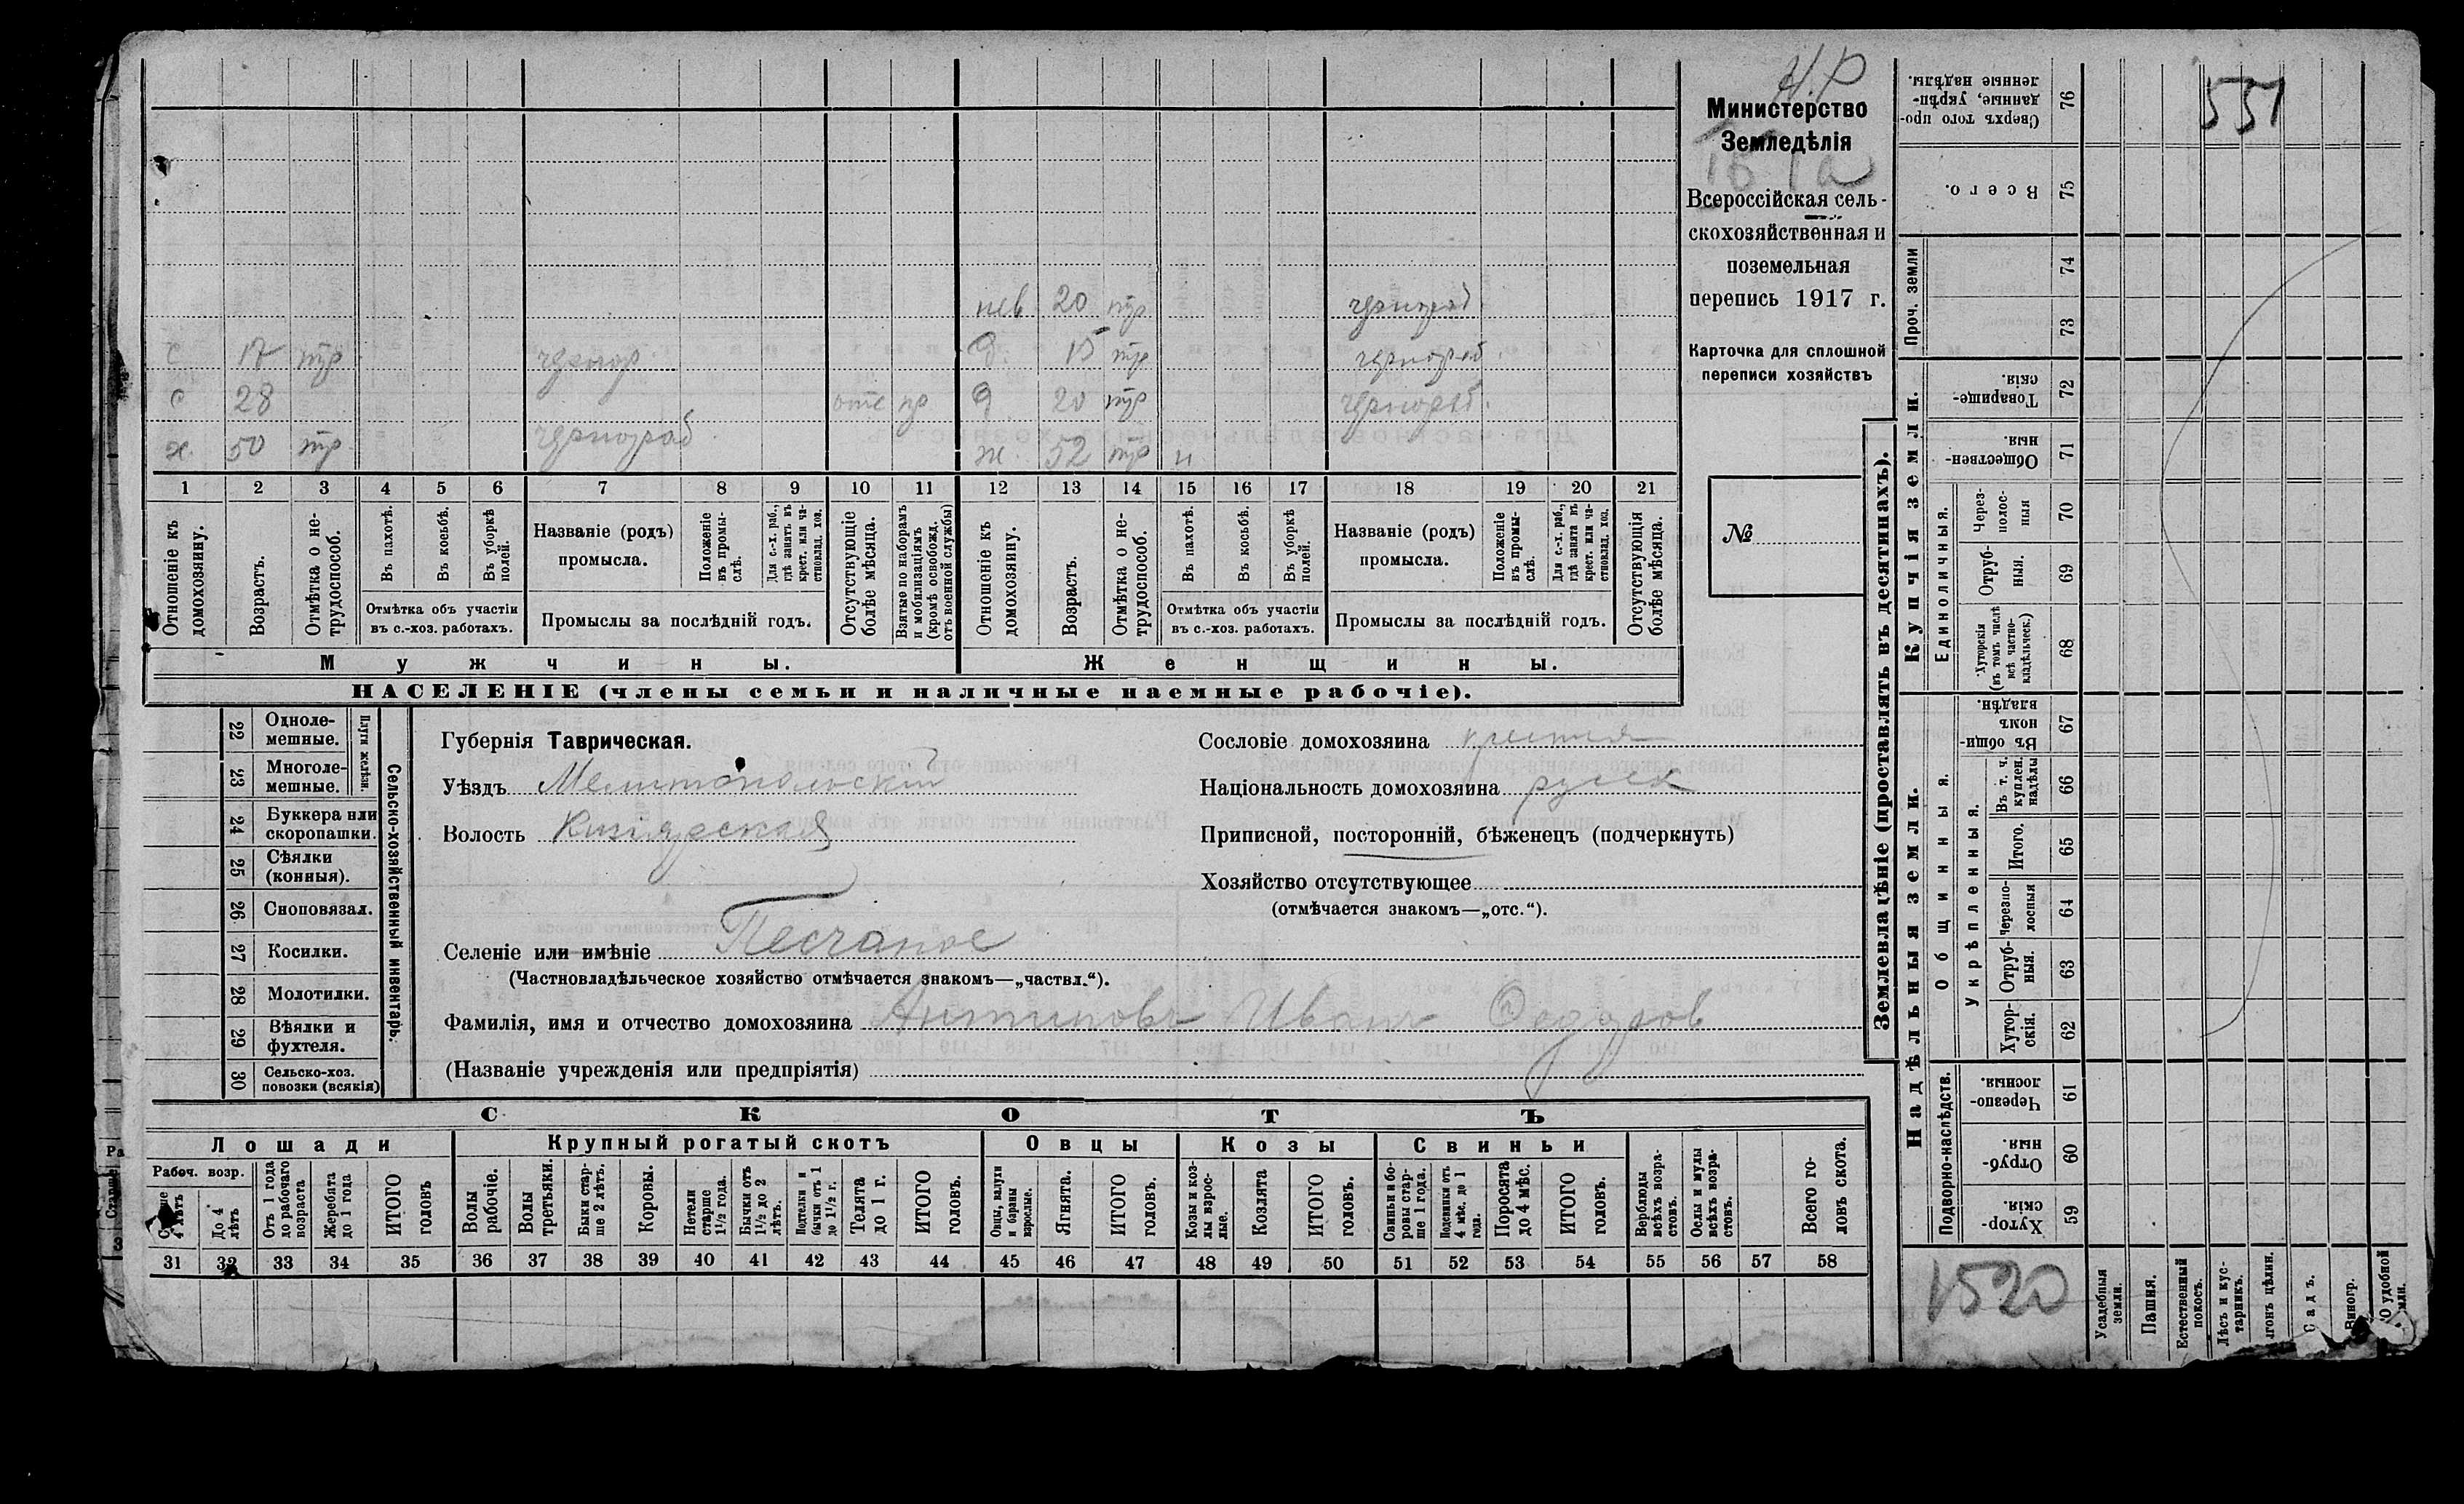 Н.Р
Министерство
Земледѣлія
Всероссійская сель-
скохозяйственная и
поземельная
перепись 1917 г.
Карточка для сплошной
переписи хозяйствъ
№
551
нев. 20 тр чернораб.
с 17 тр чернор. д. 15 тр чернораб.
с 28 отс пр д 20 тр чернораб.
х. 50 тр. чернораб. ж. 52 тр п
1 2 3 4 5 6 7 8 9 10 11 12 13 14 15 16 17 18 19 20 21
Отношеніе къ домохозяину.
Возрастъ.
Отмѣтка о не-трудоспособ.
Въ пахотѣ.
Въ косьбѣ.
Въ уборкѣ полей.
Отмѣтка объ участіи
въ с.-хоз. работахъ.
Названіе (родъ)
промысла.
Положеніе въ промы-слѣ.
Для с.-х. раб., гдѣ занятъ въ крест. или ча-стновлад. хоз.
Промыслы за послѣдній годъ.
Отсутствующіе болѣе мѣсяца.
Взятые по наборамъ и мобилизаціямъ (кромѣ освобожд. отъ военной службы)
Отношеніе къ домохозяину.
Возрастъ.
Отмѣтка о не-трудоспособ.
Въ пахотѣ.
Въ косьбѣ.
Въ уборкѣ полей.
Отмѣтка объ участіи
въ с.-хоз. работахъ.
Названіе (родъ)
промысла.
Положеніе въ промы-слѣ.
Для с.-х. раб., гдѣ занята въ крест. или ча-стновлад. хоз.
Промыслы за послѣдній годъ.
Отсутствующія болѣе мѣсяца.
Мужчины.
Женщины.
НАСЕЛЕНІЕ (члены семьи и наличные наемные рабочіе).
22 Одноле-мешные.
23 Многоле-мешные.
Плуги желѣзн.
24 Буккера или скоропашки.
25 Сѣялки (конныя).
26 Сноповязал.
27 Косилки.
28 Молотилки.
29 Вѣялки и фухтеля.
30 Сельско-хоз. повозки (всякія)
Сельско-хозяйственный инвентарь.
Губернія Таврическая.
Уѣздъ Мелитопольскій
Волость Кизіярская
Селеніе или имѣніе Песчаное
(Частновладѣльческое хозяйство отмѣчается знакомъ—„частвл.“).
Фамилія, имя и отчество домохозяина Антиповъ Иванъ Федоров
(Названіе учрежденія или предпріятія)
Сословіе домохозяина крестья
Національность домохозяина русск
Приписной, посторонній, бѣженецъ (подчеркнуть)
Хозяйство отсутствующее
(отмѣчается знакомъ—„отс.“).
СКОТЪ
Лошади
Крупный рогатый скотъ
Овцы
Козы
Свиньи
Рабоч. возр.
До 4 лѣтъ
Отъ 1 года до рабочаго возраста
Жеребята до 1 года
ИТОГО головъ
Волы рабочіе.
Волы третьяки.
Быки стар-ше 2 лѣтъ.
Коровы.
Нетели старше 1½ года.
Бычки отъ 1½ до 2 лѣтъ.
Подтелки и бычки отъ 1 до 1½ г.
Телята до 1 г.
ИТОГО головъ.
Овцы, валухи и бараны взрослые.
Ягнята.
ИТОГО головъ.
Козы и коз-лы взрос-лые.
Козлята
ИТОГО головъ.
Свиньи и бо-ровы стар-ше 1 года.
Подсвинки отъ 4 мѣс. до 1 года.
Поросята до 4 мѣс.
ИТОГО головъ.
Верблюды всѣхъ возра-стовъ.
Ослы и мулы всѣхъ возра-стовъ.
Всего го-ловъ скота.
31 32 33 34 35 36 37 38 39 40 41 42 43 44 45 46 47 48 49 50 51 52 53 54 55 56 57 58
Землевладѣніе (проставлять въ десятинахъ).
Сверхъ того про-данные, укрѣп-ленные надѣлы. 76
Всего. 75
Проч. земли
74
73
Купчія земли.
Товарище-скія. 72
Обществен-ныя 71
Единоличныя.
Через-полос-ныя 70
Отруб-ныя. 69
Хуторскія (въ томъ числѣ всѣ частно-владѣльческ.) 68
Надѣльныя земли.
Общинныя.
Въ общи-номъ владѣн. 67
Укрѣпленныя.
Въ т. ч. куплен. надѣлы 66
Итого. 65
Черезпо-лосныя 64
Отруб-ныя. 63
Хутор-скія. 62
Подворно-наслѣдств.
Черезпо-лосныя. 61
Отруб-ныя. 60
Хутор-скія 59
1520
Усадебныя земли.
Пашня.
Естественный покосъ.
Лѣсъ и кус-тарникъ.
Садъ.
Виногр.
удобной